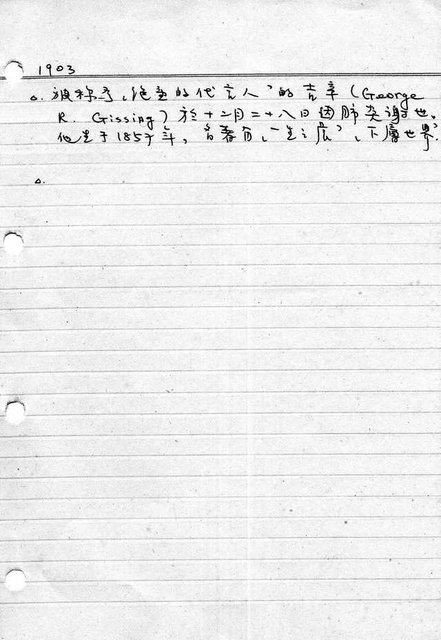 1903
△. 被称为“絶望的代言人”的吉辛 (George
R. Gissing) 於十二月二十八日因肺炎謝世。
他生于1857年, 曾著有“生之", "下層世界"
△.